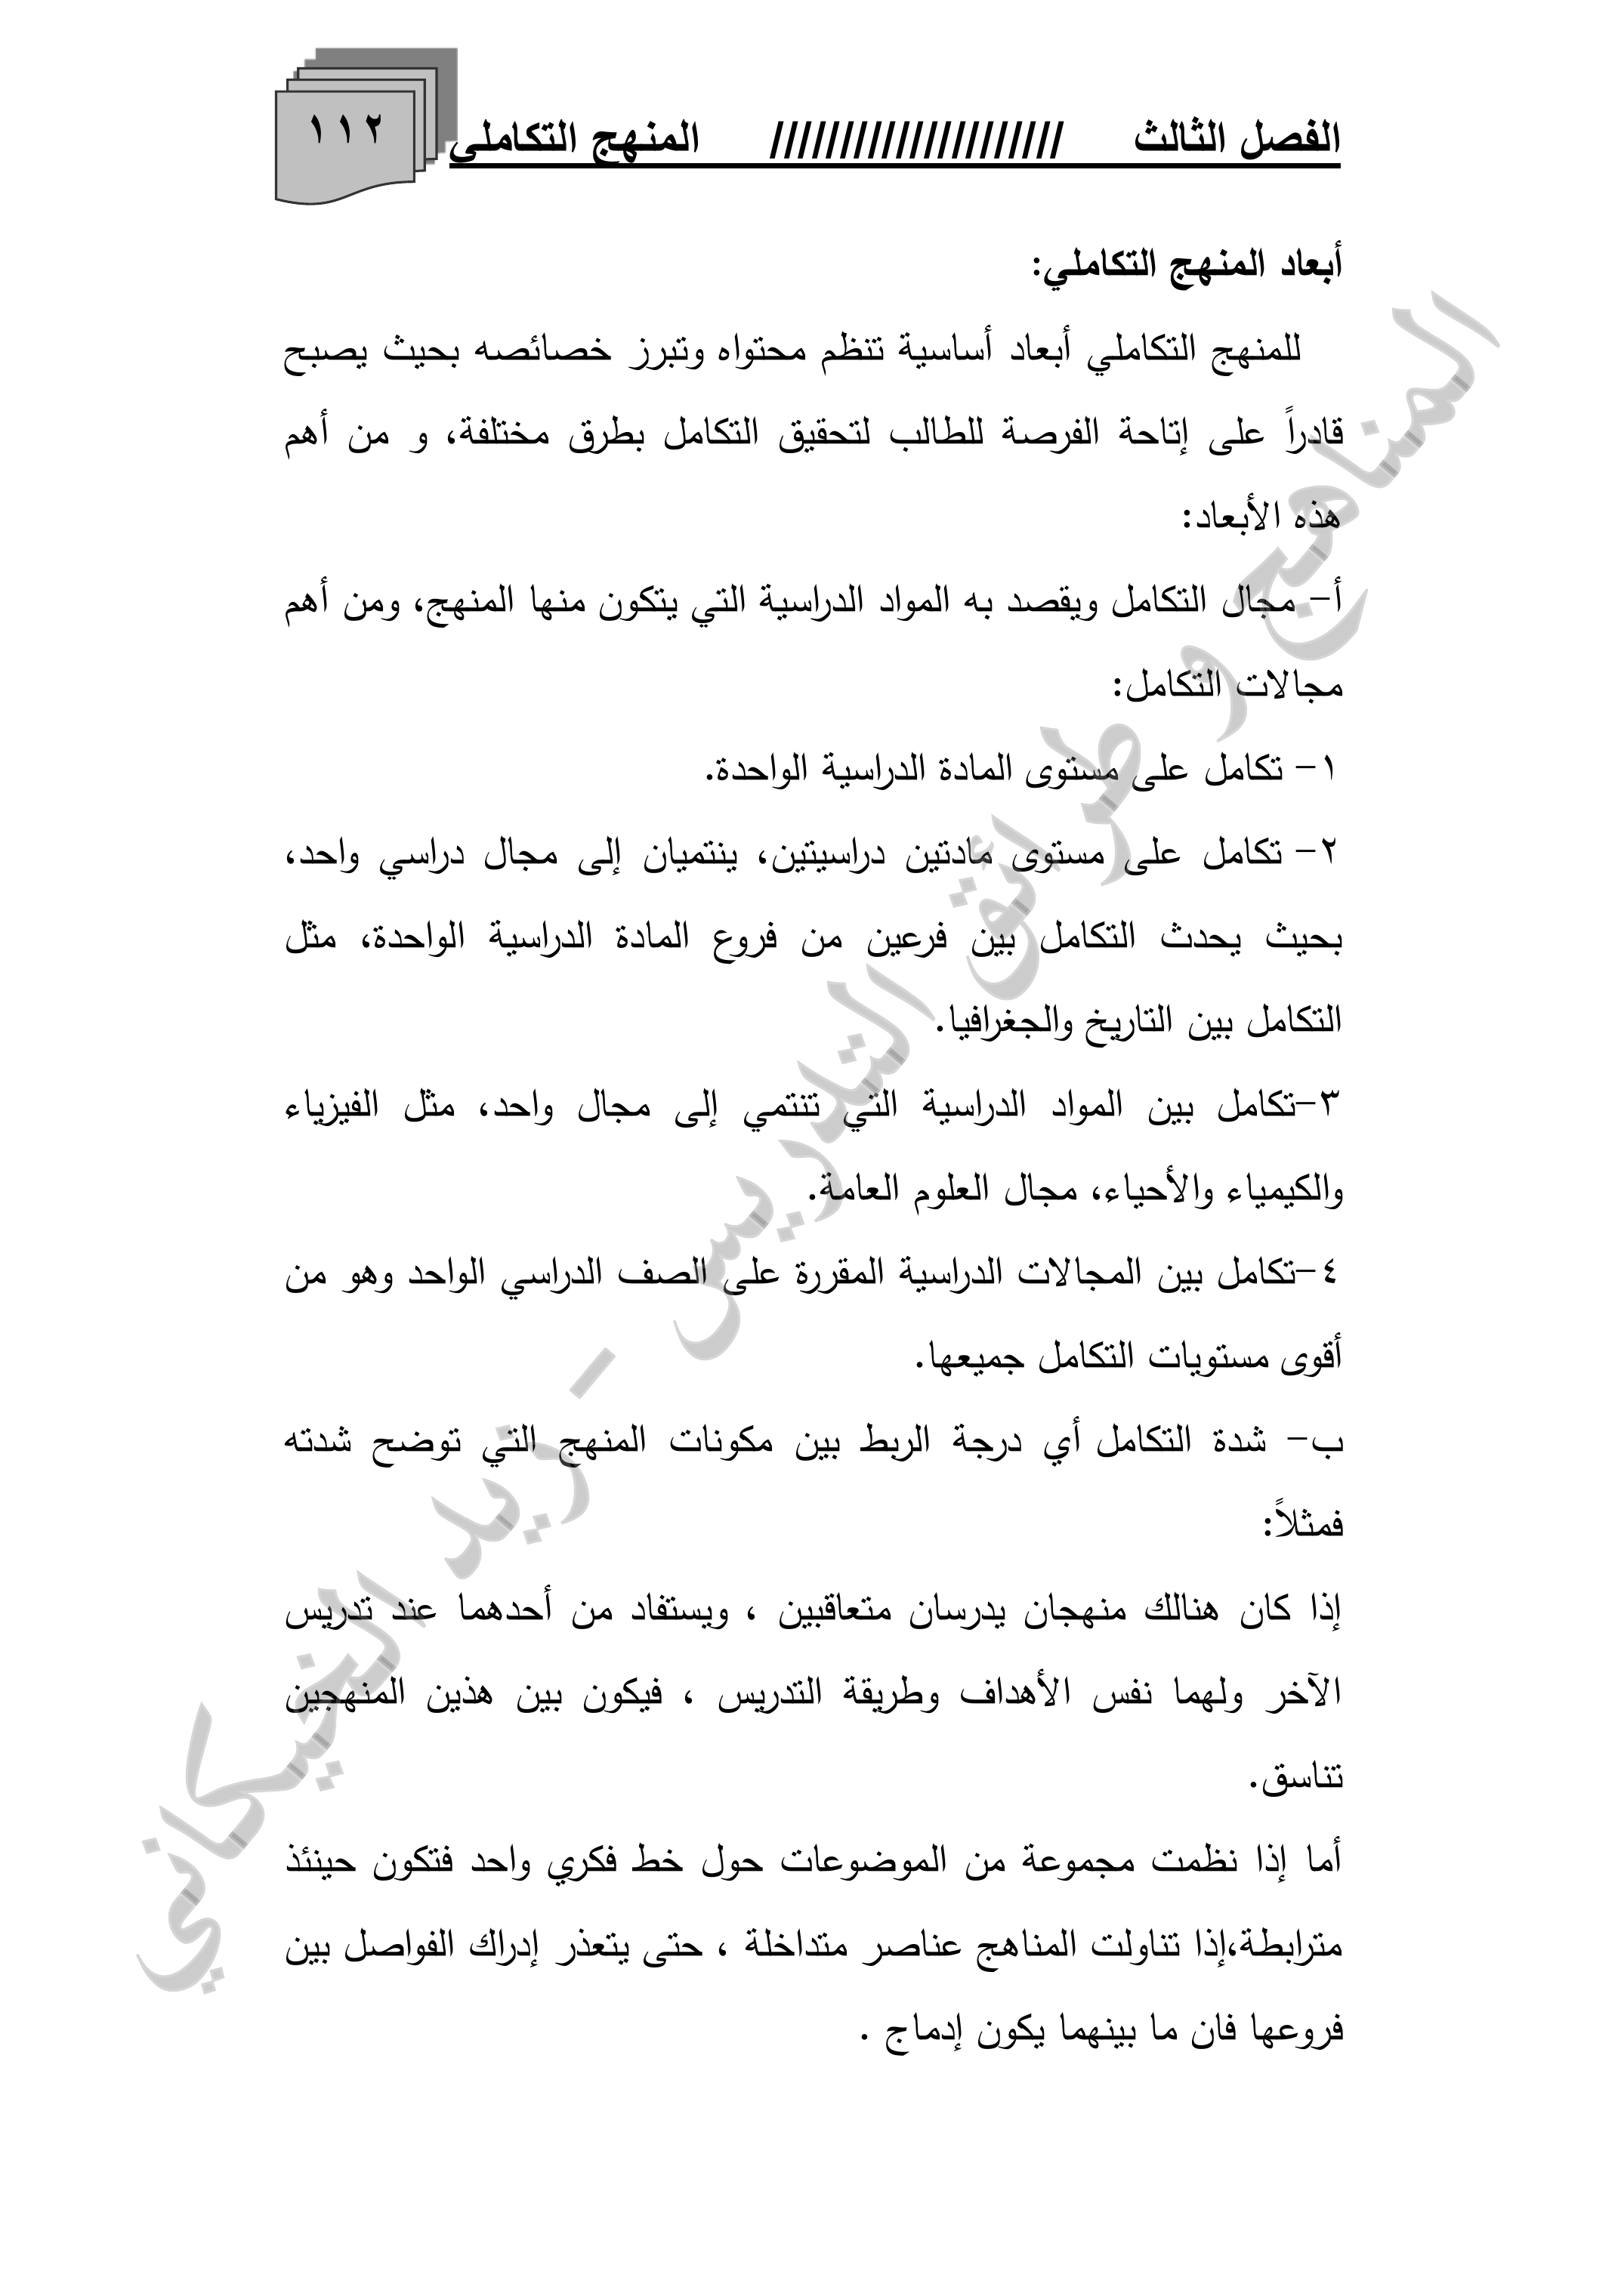 الفصل الثالث ///////////////////// المنهج التكاملي ١١٢
أبعاد المنهج التكاملي:
للمنهج التكاملي أبعاد أساسية تنظم محتواه وتبرز خصائصه بحيث يصبح
قادراً على إتاحة الفرصة للطالب لتحقيق التكامل بطرق مختلفة، و من أهم
هذه الأبعاد:
أ- مجال التكامل ويقصد به المواد الدراسية التي يتكون منها المنهج، ومن أهم
مجالات التكامل:
١- تكامل على مستوى المادة الدراسية الواحدة.
٢- تكامل على مستوى مادتين دراسيتين، ينتميان إلى مجال دراسي واحد،
بحيث يحدث التكامل بين فرعين من فروع المادة الدراسية الواحدة، مثل
التكامل بين التاريخ والجغرافيا.
٣-تكامل بين المواد الدراسية التي تنتمي إلى مجال واحد، مثل الفيزياء
والكيمياء والأحياء، مجال العلوم العامة.
٤-تكامل بين المجالات الدراسية المقررة على الصف الدراسي الواحد وهو من
أقوى مستويات التكامل جميعها.
ب- شدة التكامل أي درجة الربط بين مكونات المنهج التي توضح شدته
فمثلاً:
إذا كان هنالك منهجان يدرسان متعاقبين ، ويستفاد من أحدهما عند تدريس
الآخر ولهما نفس الأهداف وطريقة التدريس ، فيكون بين هذين المنهجين
تناسق.
أما إذا نظمت مجموعة من الموضوعات حول خط فكري واحد فتكون حينئذ
مترابطة،إذا تناولت المناهج عناصر متداخلة ، حتى يتعذر إدراك الفواصل بين
فروعها فان ما بينهما يكون إدماج .
المناهج و طرائق التدريس - زيد الخيكاني